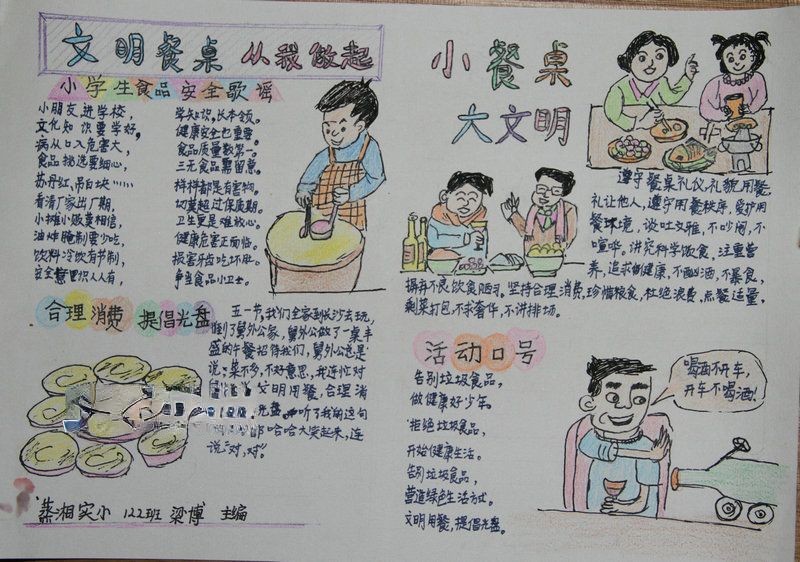 文明餐桌 从我做起
小学生食品安全歌谣
小朋友,进学校,
文化知识要学好。
病从口入危害大,
食品挑选要细心,
苏丹红,吊白块……
看清厂家出厂期,
小摊小贩莫相信,
油炸腌制要少吃,
饮料冷饮有节制,
安全意识人人有,
学知识,长本领。
健康安全也重要。
食品质量数第一。
三无食品需留意。
样样都是有害物。
切莫超过保质期。
卫生更是难放心。
健康危害正面临。
损害牙齿吃坏肚。
争当食品小卫士。
合理消费 提倡光盘
五一节,我们全家到长沙去玩,
到了舅外公家,舅外公做了一桌丰
盛的午餐招待我们,舅外公总是
说:菜不多,不好意思,我连忙对
文明用餐,合理消
光盘,听了我的这句
哈哈大笑起来,连
说"对,对"。
蒸湘实小 122班 梁博 主编
小餐桌
大文明
遵守餐桌礼仪,礼貌用餐
礼让他人,遵守用餐秩序,爱护用
餐环境,谈吐文雅,不吵闹,不
喧哗。讲究科学饮食,注重营
养,追求健康,不酗酒,不暴食,
摒弃不良饮食陋习。坚持合理消费,珍惜粮食,杜绝浪费,点餐适量,
剩菜打包,不求奢侈,不讲排场。
活动口号
告别垃圾食品,
做健康好少年。
拒绝垃圾食品,
开始健康生活。
告别垃圾食品,
营造绿色生活方式。
文明用餐,提倡光盘。
喝酒不开车,
开车不喝酒!